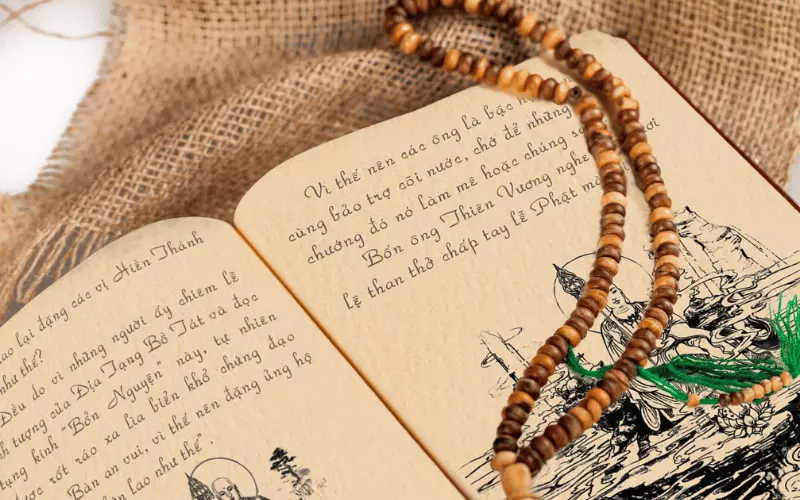 lại đặng các vị Hiền Thánh
như thế?
Đều do vì những người ấy chiêm lễ
tượng của Địa Tạng Bồ Tát và đọc
tụng kinh “Bổn Nguyện” này, tự nhiên
rốt ráo xa lìa biển khổ chứng đạo
Bàn an vui, vì thế nên đặng ủng hộ
lao như thế”.
Vì thế nên các ông là bậc
cùng bảo trợ cõi nước, chớ để những
chướng đó nó làm mê hoặc chúng
Bốn ông Thiên Vương nghe
lệ than thở chấp tay lễ Phật